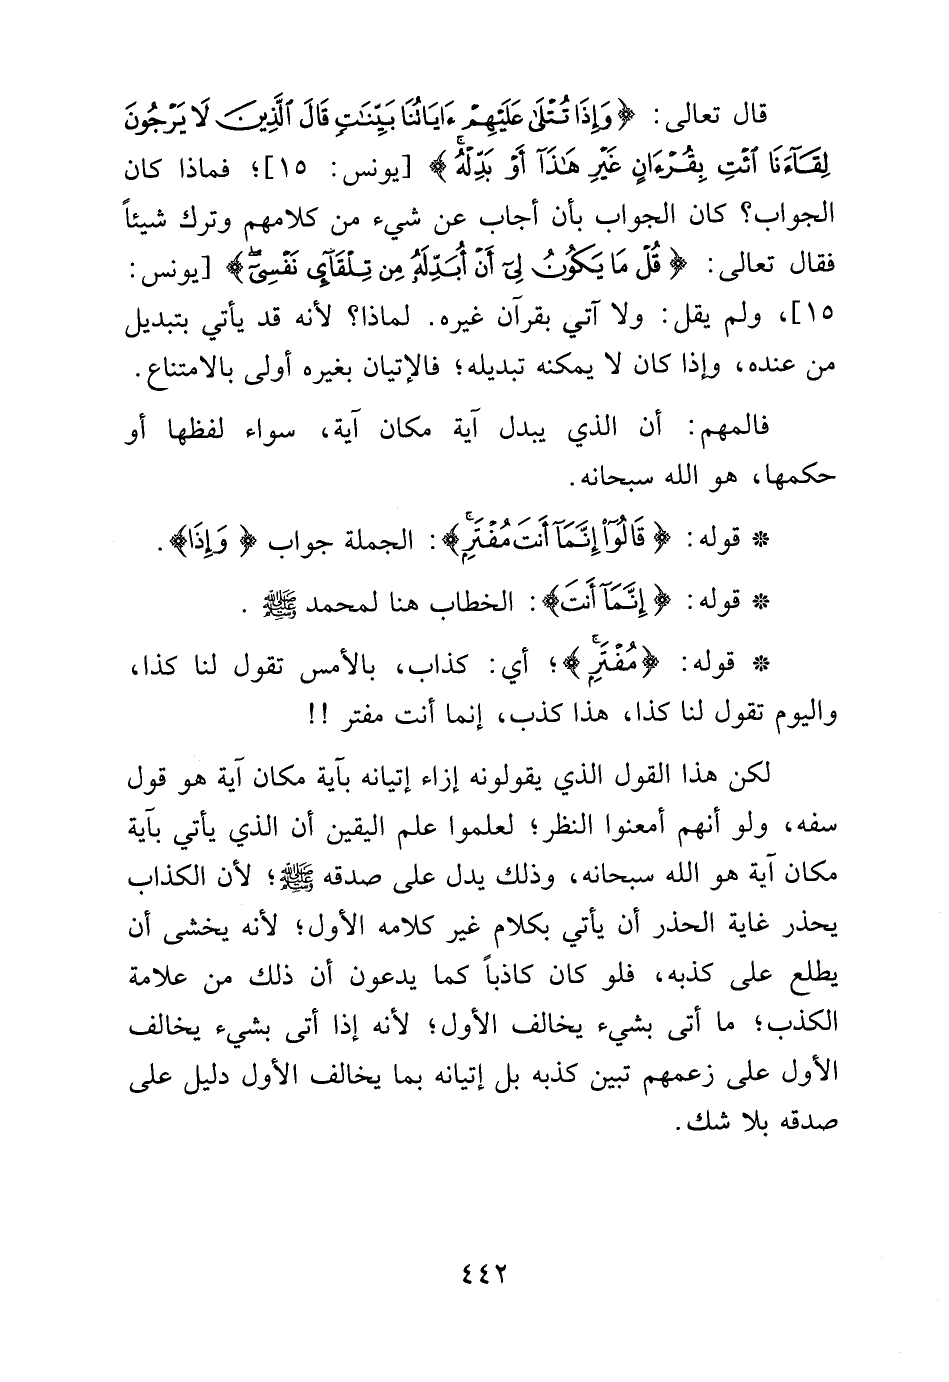 قال تعالى: ﴿وَإِذَا تُتْلَىٰ عَلَيْهِمْ ءَايَاتُنَا بَيِّنَٰتٍ قَالَ ٱلَّذِينَ لَا يَرْجُونَ
لِقَآءَنَا ٱئْتِ بِقُرْءَانٍ غَيْرِ هَٰذَآ أَوْ بَدِّلْهُۚ﴾ [يونس: ١٥]؛ فماذا كان
الجواب؟ كان الجواب بأن أجاب عن شيء من كلامهم وترك شيئاً
فقال تعالى: ﴿قُلْ مَا يَكُونُ لِىٓ أَنْ أُبَدِّلَهُۥ مِن تِلْقَآئِ نَفْسِىٓۖ﴾ [يونس:
١٥]، ولم يقل: ولا آتي بقرآن غيره. لماذا؟ لأنه قد يأتي بتبديل
من عنده، وإذا كان لا يمكنه تبديله؛ فالإتيان بغيره أولى بالامتناع.
فالمهم: أن الذي يبدل آية مكان آية، سواء لفظها أو
حكمها، هو الله سبحانه.
* قوله: ﴿قَالُوٓا۟ إِنَّمَآ أَنتَ مُفْتَرٍۭۚ﴾: الجملة جواب ﴿وَإِذَا﴾.
* قوله: ﴿إِنَّمَآ أَنتَ﴾: الخطاب هنا لمحمد ﷺ.
* قوله: ﴿مُفْتَرٍۭۚ﴾؛ أي: كذاب، بالأمس تقول لنا كذا،
واليوم تقول لنا كذا، هذا كذب، إنما أنت مفتر !!
لكن هذا القول الذي يقولونه إزاء إتيانه بآية مكان آية هو قول
سفه، ولو أنهم أمعنوا النظر؛ لعلموا علم اليقين أن الذي يأتي بآية
مكان آية هو الله سبحانه، وذلك يدل على صدقه ﷺ؛ لأن الكذاب
يحذر غاية الحذر أن يأتي بكلام غير كلامه الأول؛ لأنه يخشى أن
يطلع على كذبه، فلو كان كاذباً كما يدعون أن ذلك من علامة
الكذب؛ ما أتى بشيء يخالف الأول؛ لأنه إذا أتى بشيء يخالف
الأول على زعمهم تبين كذبه بل إتيانه بما يخالف الأول دليل على
صدقه بلا شك.
٤٤٢